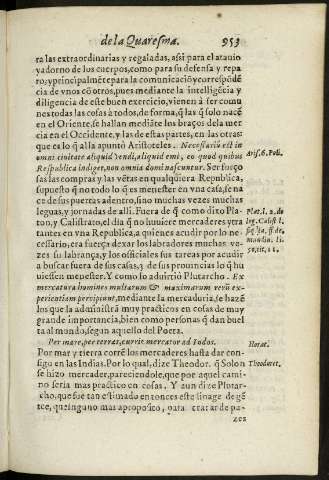 de la Quaresma. 953
ra las extraordinarias y regaladas, assi para el atauio
y adorno de los cuerpos, como para su defensa y repa
ro, y principalmēte para la comunicaciō y correspōdē
cia de vnos cō otros, pues mediante la intelligētia y
diligencia de este buen exercicio, vienen à ser comu
nes todas las cosas à todos, de forma, q̄ las q̄ solo nacē
en el Oriente, se hallan mediãte los braços de la mer
cia en el Occidente, y las de estas partes, en las otras:
que es lo q̄ alla apuntó Aristoteles. Necessariū est in
omni ciuitate aliquid vendi, aliquid emi, eo quod quibus
Respublica indiget, non omnia domi nascuntur. Ser forço
sas las compras y las vētas en qualquiera Republica,
supuesto q̄ no todo lo q̄ es menester en vna casa, se na
ce de sus puertas adentro, sino muchas vezes muchas
leguas, y jornadas de alli. Fuera de q̄ como dixo Pla-
ton, y Calistrato, el dia q̄ no huuiere mercaderes y tra
tantes en vna Republica, a quienes acudir por lo ne-
cessario, era fuerça dexar los labradores muchas ve-
zes su labrança, y los officiales sus tareas por acudir
a buscar fuera de sus casas, y de sus prouincias lo q̄ hu
uiessen menester. Y como lo aduirtiò Plutarcho. Ex
mercatura homines multarum & maximarum rerū ex-
perientiam percipiunt, mediante la mercaduria, se hazē
los que la administrā muy practicos en cosas de muy
grande importancia, bien como personas q̄ dan buel
ta al mundo, segun aquello del Poeta.
Per mare, per terras, currit mercator ad Indos.
Por mar y tierra corrē los mercaderes hasta dar con-
sigo en las Indias. Por lo qual, dize Theodor. q̄ Solon
se hizo mercader, pareciendole, que por aquel cami-
no seria mas practico en cosas. Y aun dize Plutar-
cho, que fue tan estimado entonces este linage de gē
te, que ninguno mas aproposito, para tratar de pa-
zes
Aris. 6. Poli.
Plat. l. 2. de
leg. Calist. l.
Horat.
Theodoret.